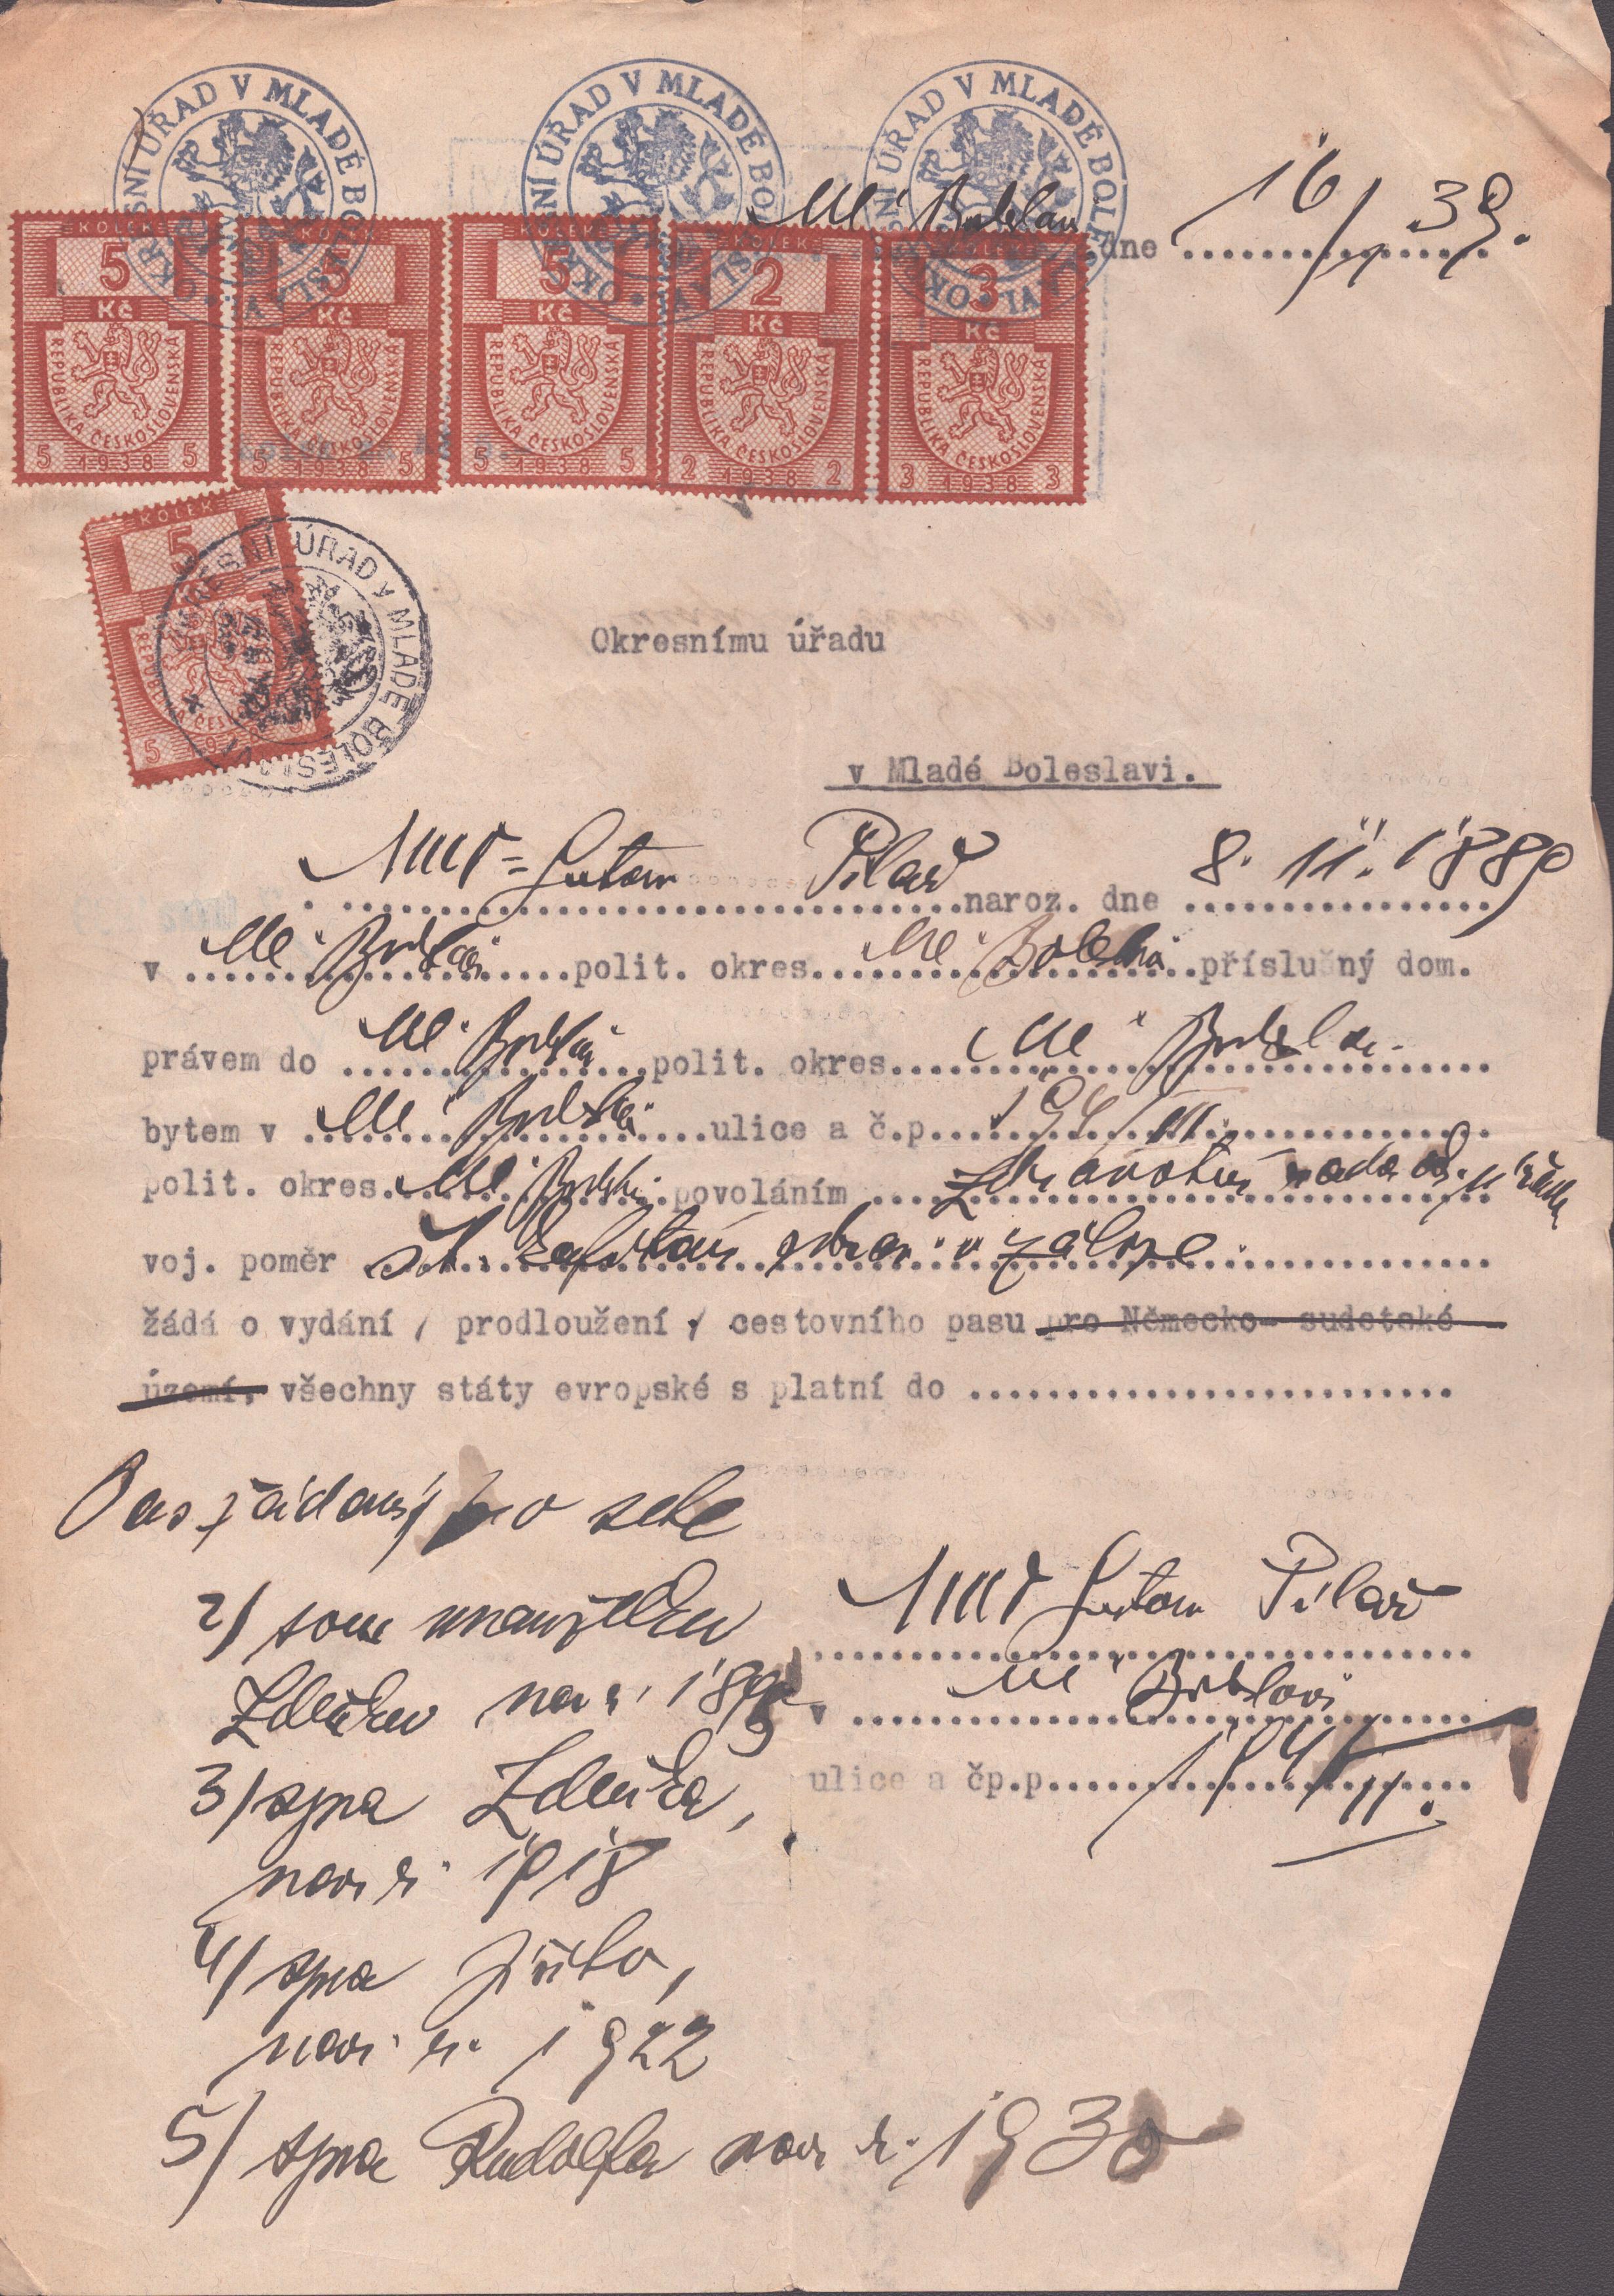 OKRESNÍ ÚŘAD V MLADÉ BOLESLAVI
OKRESNÍ ÚŘAD V MLADÉ BOLESLAVI
OKRESNÍ ÚŘAD V MLADÉ BOLESLAVI
Ml. Boleslav dne 16/ 39.
KOLEK 5 Kč REPUBLIKA ČESKOSLOVENSKÁ 5 1938 5
KOLEK 5 Kč REPUBLIKA ČESKOSLOVENSKÁ 5 1938 5
KOLEK 5 Kč REPUBLIKA ČESKOSLOVENSKÁ 5 1938 5
KOLEK 2 Kč REPUBLIKA ČESKOSLOVENSKÁ 2 1938 2
KOLEK 3 Kč REPUBLIKA ČESKOSLOVENSKÁ 3 1938 3
KOLEK 5
OKRESNÍ ÚŘAD V MLADÉ BOLESLAVI
Okresnímu úřadu
v Mladé Boleslavi.
MUDr Pilař naroz. dne 8. 11. 1889
v Ml. Boleslavi polit. okres Ml. Boleslav příslušný dom.
právem do Ml. Boleslavi polit. okres Ml. Boleslav
bytem v Ml. Boleslavi ulice a č.p. 194/II
polit. okres Ml. Boleslav povoláním zdravotní rada
voj. poměr kapitán v záloze
žádá o vydání / prodloužení / cestovního pasu pro Německo- sudetské
území, všechny státy evropské s platní do
Pas žádaný pro sebe
2/ svou manželku
Zdeňku nar. r. 1895
3/ syna Zdeňka,
nar. r. 1918
4/ syna Jiřího,
nar. r. 1922
5/ syna Rudolfa nar. r. 1930
MUDr Pilař
v Ml. Boleslavi
ulice a čp.p. 194/II.